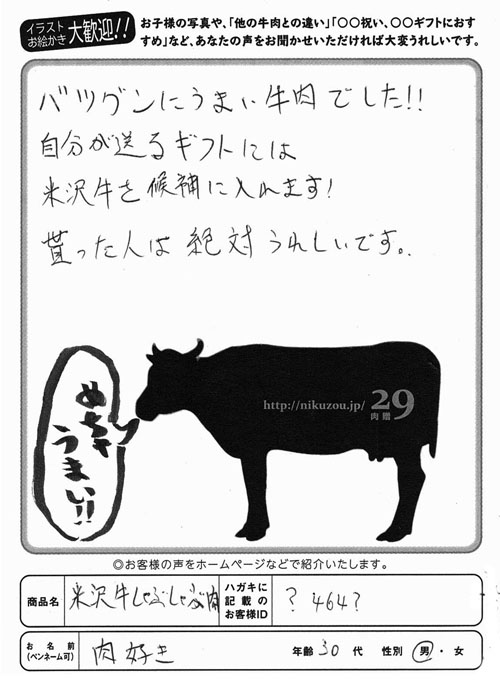 イラスト
お絵かき 大歓迎!!
お子様の写真や、「他の牛肉との違い」「〇〇祝い、〇〇ギフトにおす
すめ」など、あなたの声をお聞かせいただければ大変うれしいです。
バツグンにうまい牛肉でした!!
自分が送るギフトには
米沢牛を候補に入れます!
貰った人は絶対うれしいです。
http://nikuzou.jp/ 29
肉贈
めちゃ
うまい!!
◎お客様の声をホームページなどで紹介いたします。
商品名 米沢牛しゃぶしゃぶ肉 ハガキに記載のお客様ID ? 464?
お名前(ペンネーム可) 肉好き 年齢 30 代 性別 男・女